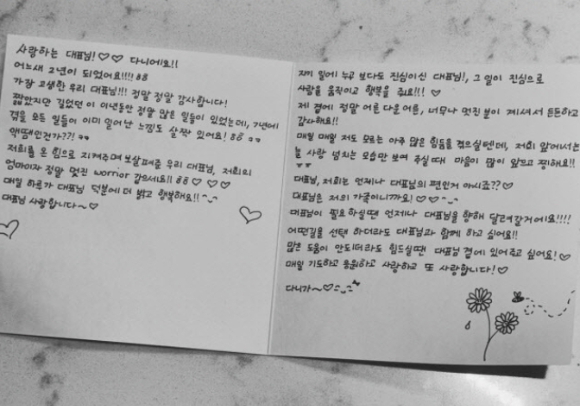 사랑하는 대표님! ♡♡ 다니에요!!
어느새 2년이 되었어요!!!! 88
가장 고생한 우리 대표님!!! 정말 정말 감사합니다!
짧았지만 길었던 이 이년동안 정말 많은 일들이 있었는데, 7년에
겪을 모든 일들이 이미 일어난 느낌도 살짝 있어요! 88
액땜인건가??!
저희를 온 힘으로 지켜주며 보살펴준 우리 대표님, 저희의
엄마이자 정말 멋진 worrior 같으세요!! 88 ♡ ♡ ♡
매일 하루가 대표님 덕분에 더 밝고 행복해요!! ^_^
대표님 사랑합니다~ ♡
자기 일에 누구 보다도 진심이신 대표님!, 그 일이 진심으로
사람을 움직이고 행복을 줘요!!! ♡
제 곁에 정말 어른 다운 어른, 너무나 멋진 분이 계셔서 든든하고
감사해요!!
매일 매일 저도 모르는 아주 많은 힘듦을 겪으실텐데, 저희 앞에서는
늘 사랑 넘치는 모습만 보여 주실때 마음이 많이 아프고 찡해요!!
대표님, 저희는 언제나 대표님의 편인거 아시죠?? ♡
대표님은 저의 가족이니까요! ♡♡ ^_^
대표님이 필요하실땐 언제나 대표님을 향해 달려갈거에요!!!!
어떤길을 선택 하더라도 대표님과 함께 하고 싶어요!!
많은 도움이 안되더라도 힘드실땐 대표님 곁에 있어주고 싶어요! ♡
매일 기도하고 응원하고 사랑하고 또 사랑합니다! ♡
다니가~ ♡